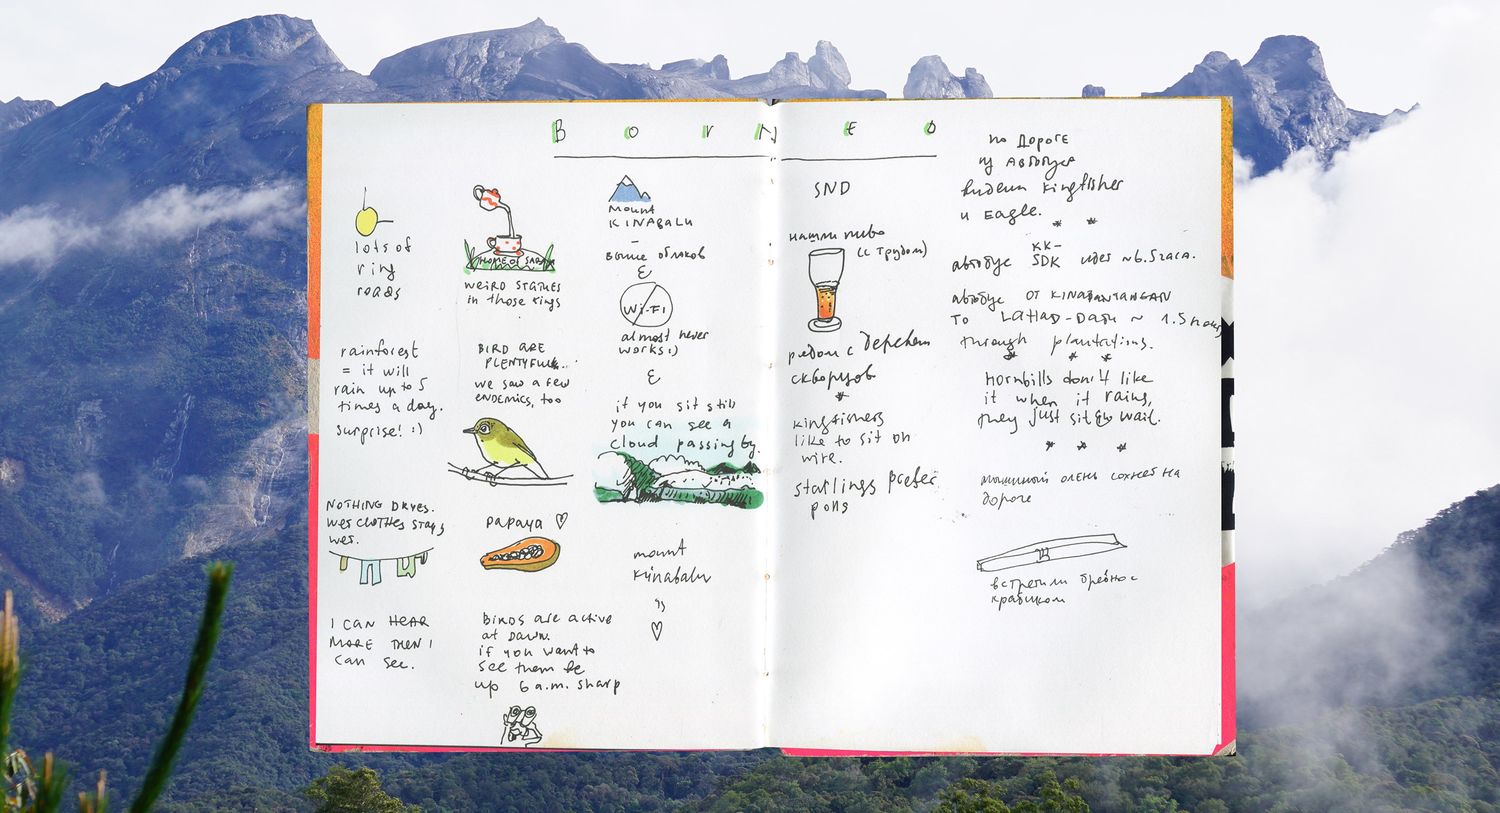 BORNEO
lots of
ring
roads
rainforest
= it will
rain up to 5
times a day.
surprise! :)
NOTHING DRYES.
WET CLOTHES STAYS
WET.
I CAN HEAR
MORE THEN I
CAN SEE.
HOME OF SABAH
WEIRD STATUES
in those rings
BIRD ARE
PLENTYFULL..
we saw a few
ENDEMICS, TOO
papaya ♡
BIRDS are active
at DAWN.
if you want to
see them be
up 6 a.m. sharp
MOUNT
KINABALU
–
выше облаков
&
Wi-Fi
almost never
works :)
&
if you sit still
you can see a
cloud passing by.
mount
Kinabalu
♡
SND
нашли пиво
(с трудом)
рядом с деревом
скворцов
*
kingfishers
like to sit on
wire.
starlings prefer
pons
по дороге
из автобуса
видели kingfisher
и Eagle.
* *
автобус KK–
SDK идет ~6.5 часа.
автобус от KINABANTANGAN
TO LAHAD-DATU ~ 1.5 hours
through plantations.
* * *
Hornbills don't like
it when it rains,
they just sit & wait.
* * *
мышиный олень сожжен на
дороге
встретили бревно с
крабиком